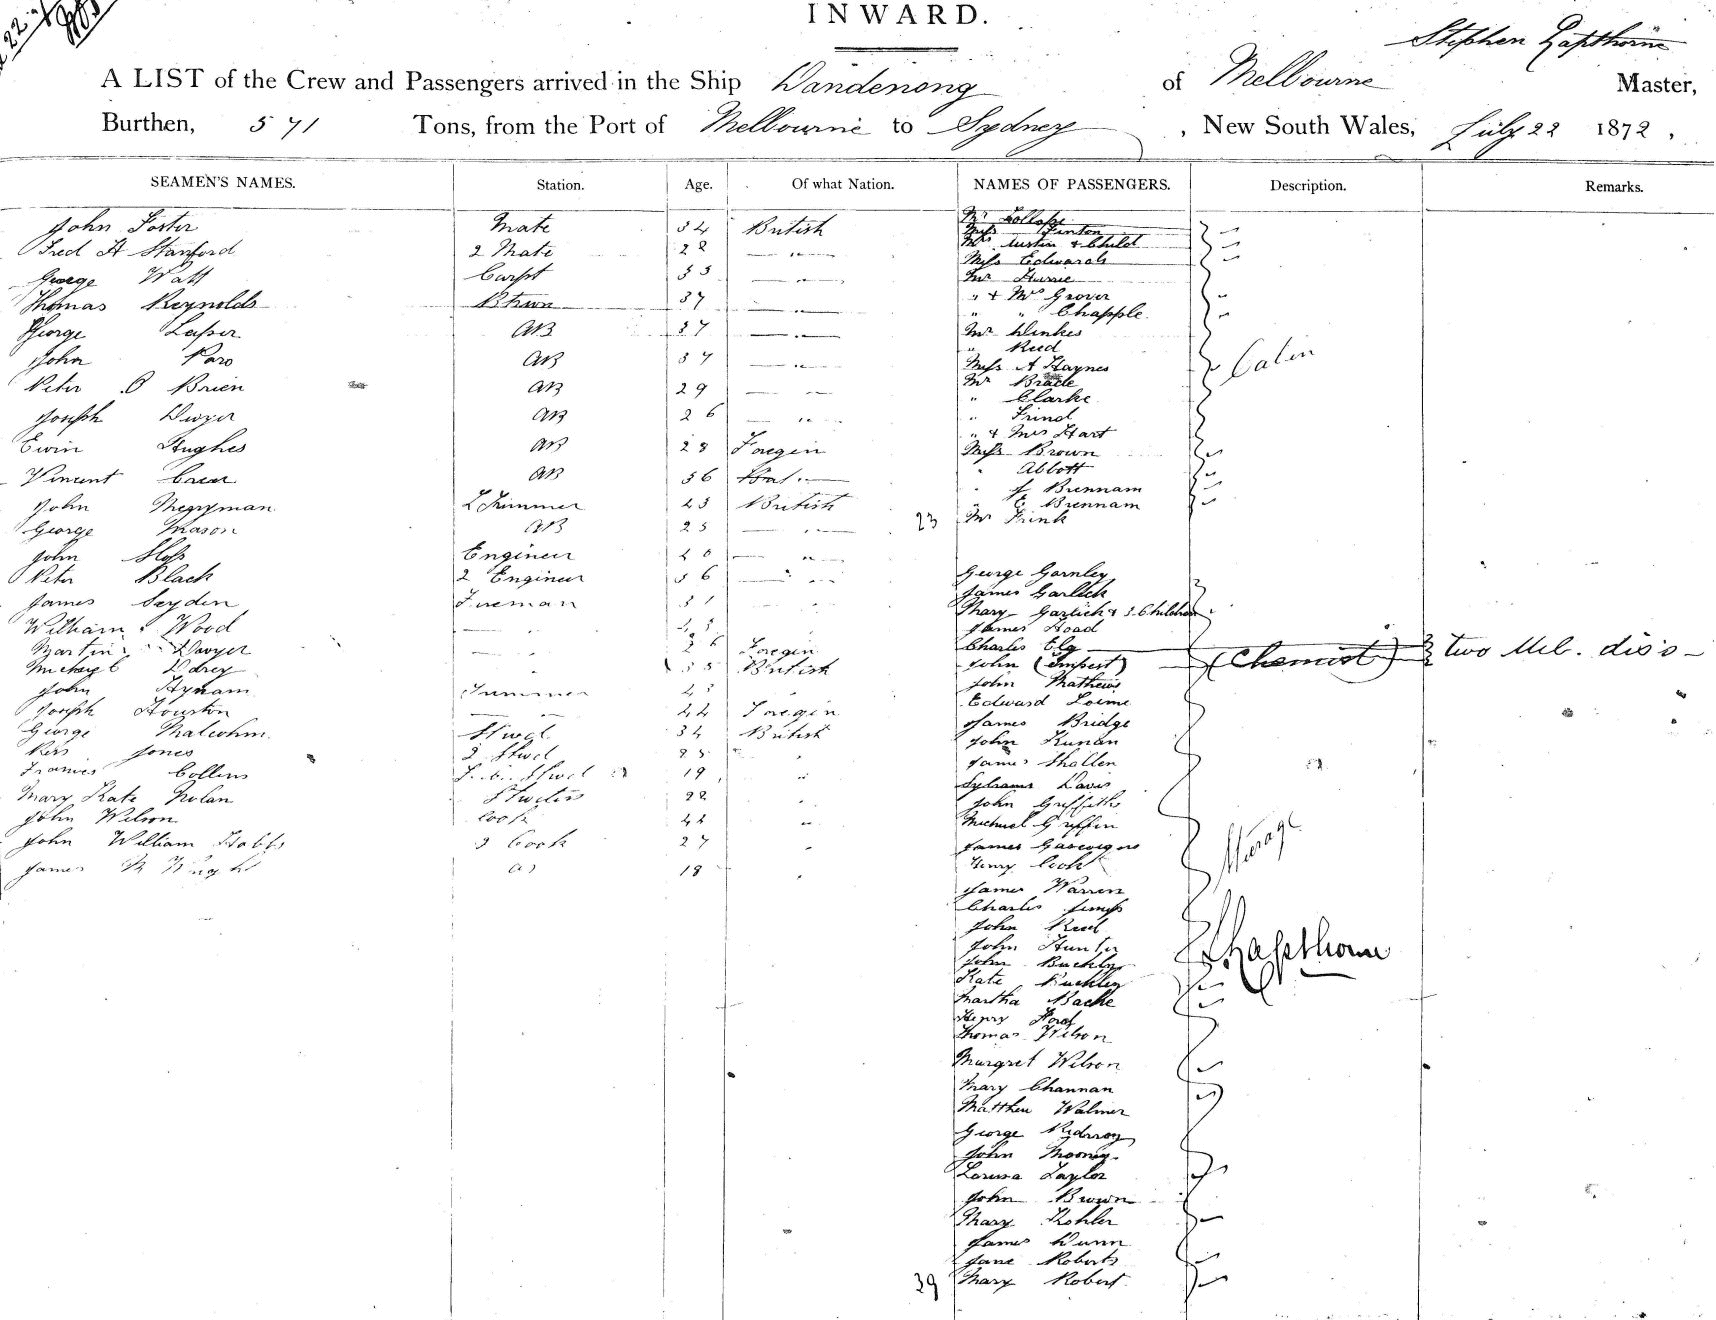 22
INWARD.
Stephen Lapthorne
A LIST of the Crew and Passengers arrived in the Ship Dandenong of Melbourne Master,
Burthen, 571 Tons, from the Port of Melbourne to Sydney, New South Wales, July 22 1872,
SEAMEN'S NAMES. Station. Age. Of what Nation. NAMES OF PASSENGERS. Description. Remarks.
John Foster Mate 34 British
Fred H Stanford 2 Mate 28
George Watt Carpt 33
Thomas Reynolds Btswn 37
George AB 37
John AB 37
Peter O Brien AB 29
Joseph Dwyer AB 26
Ewin Hughes AB 28 Foregin
Vincent AB 36
John Merryman Trimmer 23 British
George Mason AB 25
John Sloss Engineer 40
Peter Black 2 Engineer 36
James Seyden Fireman 31
William Wood
Martin Dwyer 26 Foregin
Michael Darcy 35 British
John Hynam Trimmer
Joseph Houston 44 Foregin
George Malcohm Stwd 34 British
Jones 2 Stwd 25
Francis Collins Stwd 19
Mary Kate Nolan Stwdss 22
John Wilson Cook 44
John William Hobbs 2 Cook 27
James 18
Mr
Miss Finton
Mrs Austin & Child
Miss Edwards
Mr
" & Mrs Grover
" " Chapple
Mr Dinkes
" Reed
Miss A Haynes
Mr Brade
" Clarke
" Frind
" & Mrs Hart
Miss Brown
" Abbott
" J Brennam
" C Brennam
23 Mr Frink
Cabin
George Gornley
James Garlick
Mary Garlick & 3 Children
James Hoad
Charles Elg
John (Impert) (Chemist) two Mel. dis's
John Mathews
Edward Loime
James Bridge
John Kunan
James Shallen
Sylvanus Davis
John Griffiths
Michael Griffin
James Gascoigne
Henry Cook
James Warren
Charles
John Reed
John Hunter
John Buckley
Kate Buckley
Martha Bache
Henry Ford
Thomas Wilson
Margret Wilson
Mary Channan
Matthew Walmer
George
John Mooney
Louisa Taylor
John Brown
Mary Kohler
James Dunn
Jane Roberts
39 Mary Robert
Steerage
S Lapthorne